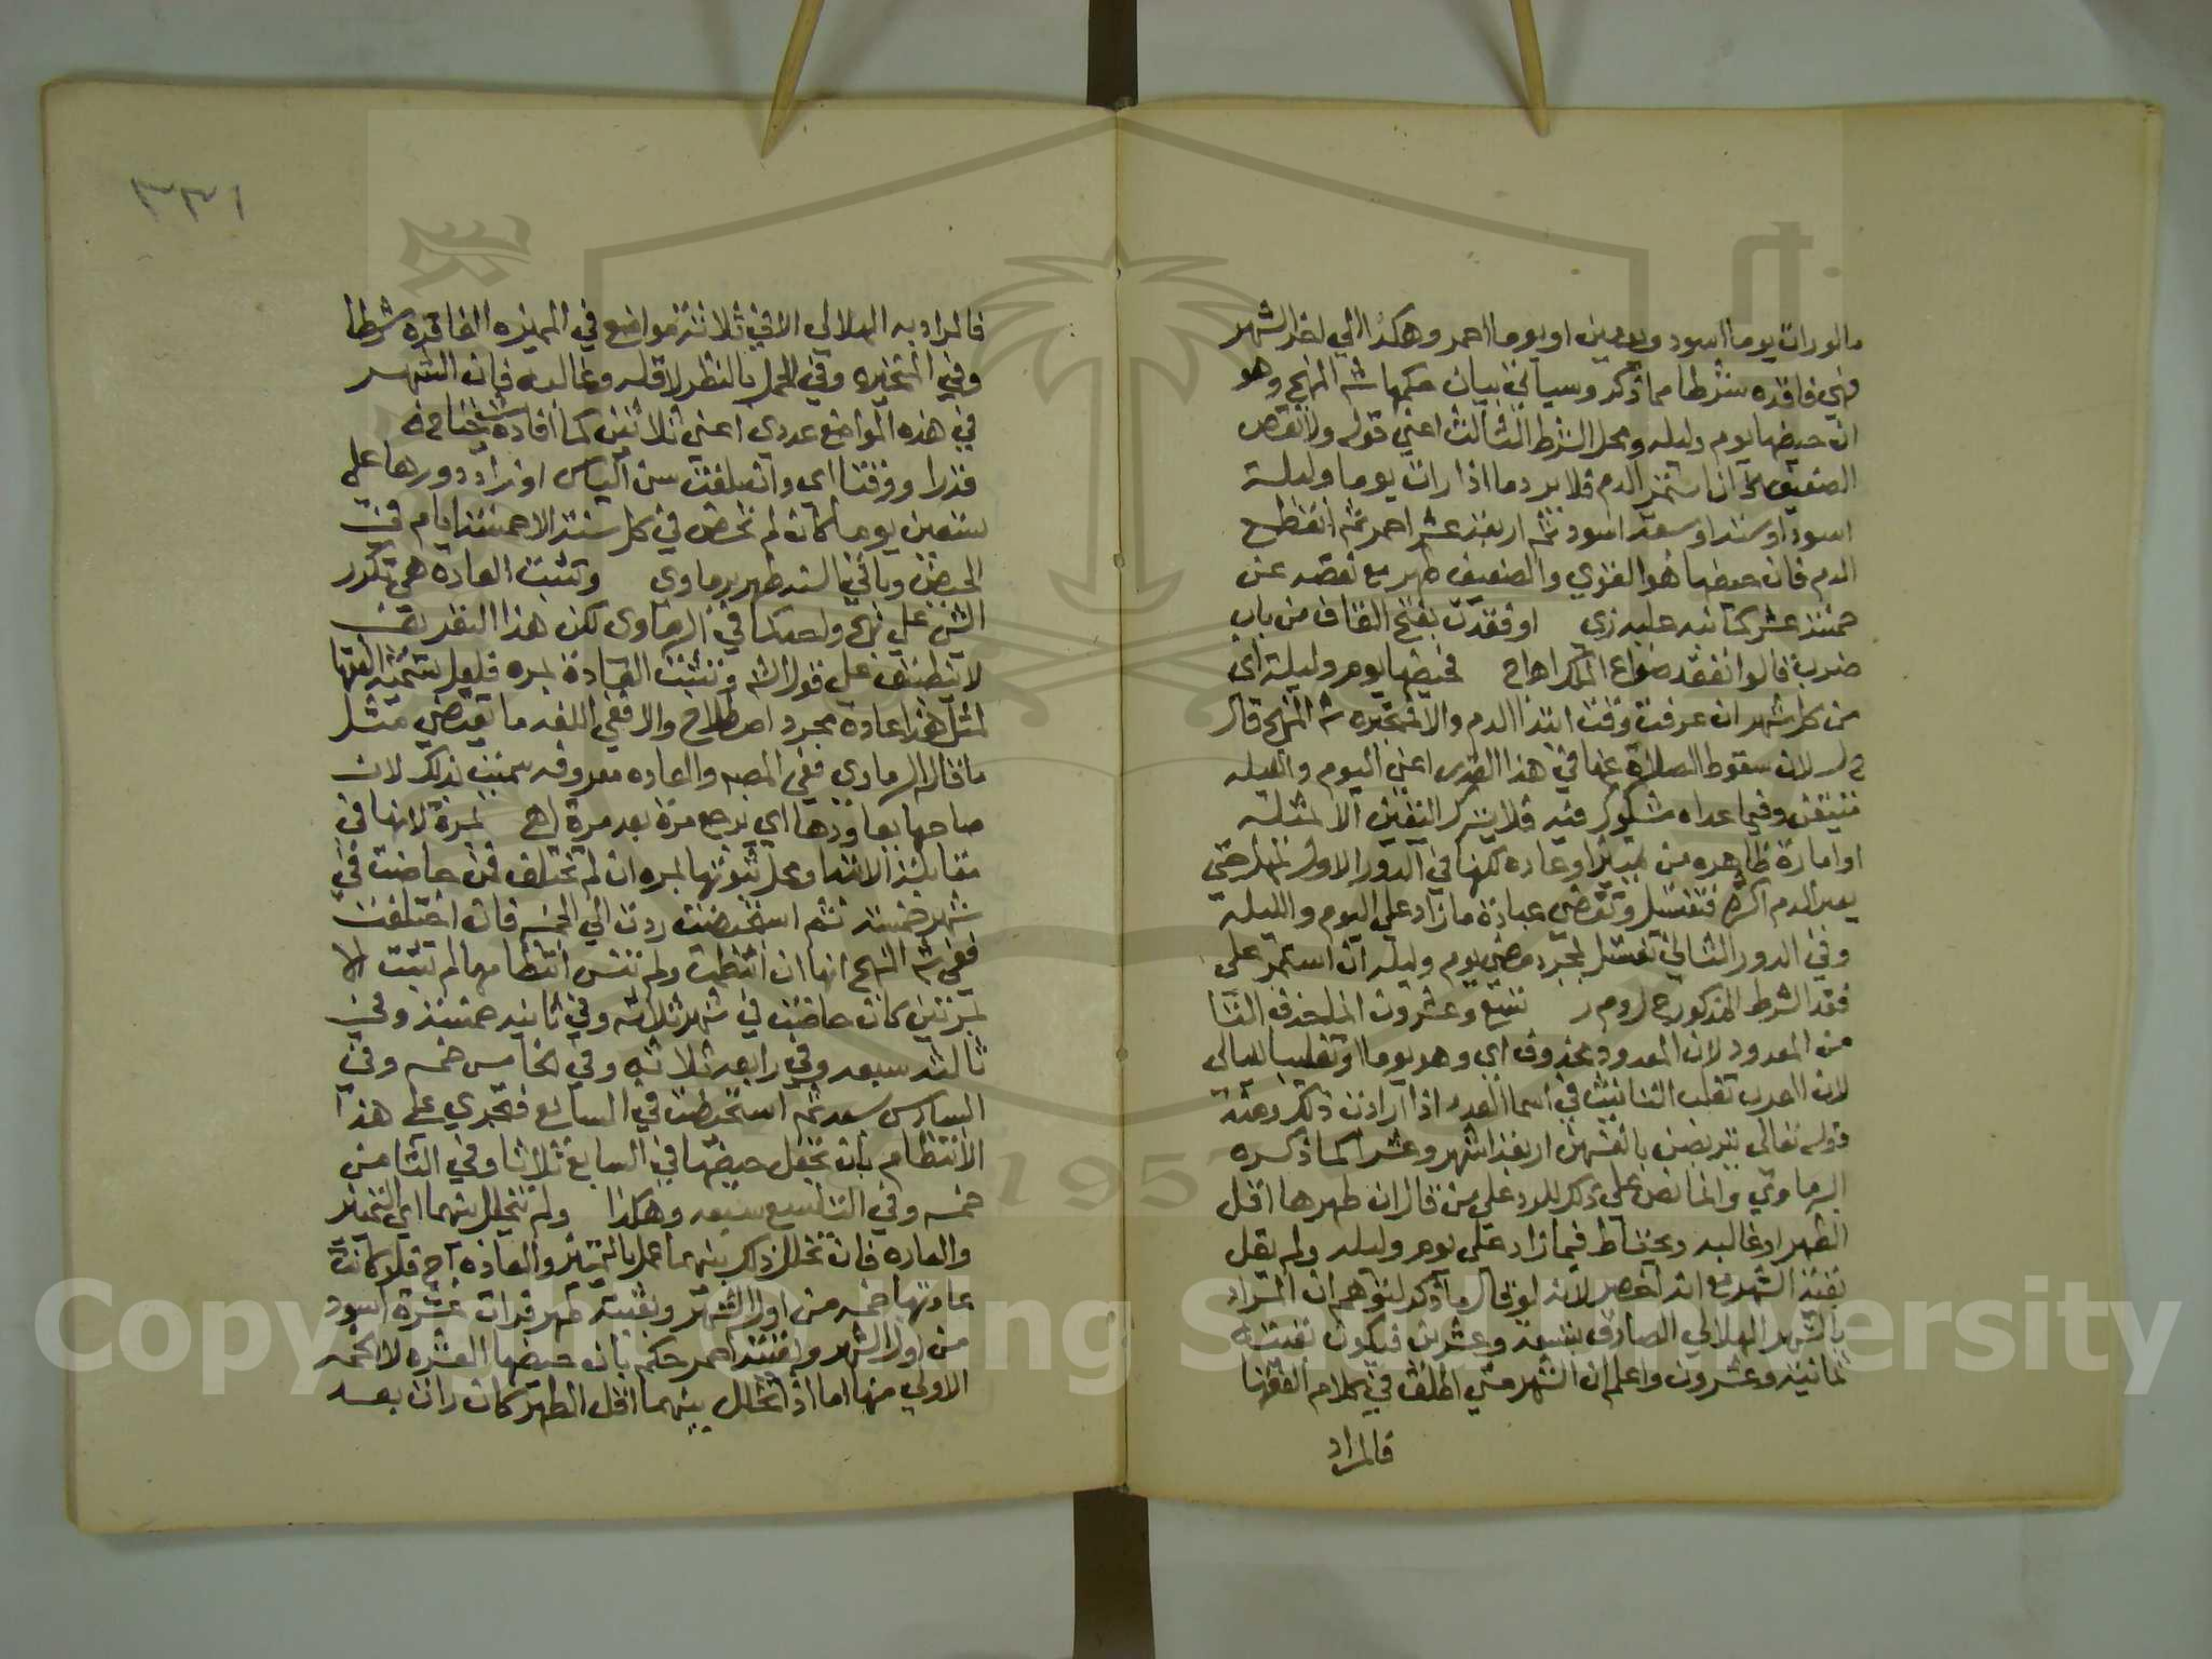 ما لو رات يوما اسود ويومين او يوما احمر وهكذا الي اخر الشهر
فهي فاقده شرطا مما ذكر وسياتي بيان حكمها شه المنهج وهو
ان حيضها يوم وليله ومحل الشرط الثالث اعني قوله ولا نقص
الضعيف الخ ان استمر الدم فلا يرد ما اذا رات يوما وليلة
اسود او ستة او سبعة اسود ثم اربعة عشر احمر ثم انقطع
الدم فان حيضها هو القوي والضعيف طهر مع نقصه عن
خمسة عشر كما نبه عليه زي او فقدت بفتح القاف من باب
ضرب قالوا نفقد صواع الملك اهاج فحيضها يوم وليلة اي
من كل شهر ان عرفت وقت ابتدا الدم والا فمتحيره شه المنهج قال
لان سقوط الصلاة عنها في هذا القدر اعني اليوم والليله
متيقن وفيما عداه مشكوك فيه فلا يترك اليقين الا لمثله
او امارة ظاهره من تمييز او عاده لكنها في الدور الاول تمهل حتي
يعبر الدم اكثره فتغتسل وتقضي عبادة ما زاد علي اليوم والليلة
وفي الدور الثاني تغتسل لمجرد مضي يوم وليله ان استمر علي
فقد الشرط المذكور تسع وعشرون انما حذف التا
من المعدود لان المعدود محذوف اي وهو يوما او تغليبا لليالي
لان العرب تغلب التانيث في اسما العدد اذا ارادت ذلك ومنه
قوله تعالى يتربصن بانفسهن اربعة اشهر وعشرا كما ذكره
البرماوي وانما نص علي ذلك للرد علي من قال ان طهرها اقل
الطهر او غالبه ويحتاط فيما زاد علي يوم وليله ولم يقل
بقية الشهر مع انه اخصر لانه لو قال ما ذكر لتوهم ان المراد
بالشهر الهلالي الصادق بتسعة وعشرين فيكون بقيته
ثمانية وعشرون واعلم ان الشهر متي اطلق في كلام الفقها
فالمراد
٣٣١
فالمراد به الهلالي الا في ثلاثة مواضع في المميزه الفاقدة شرطا
وفي المتحيره وفي الحمل بالنظر لاقله وغالبه فان الشهر
في هذه المواضع عددي اعني ثلاثين كما افاده شيخنا
قدرا ووقتا اي وان بلغت سن الياس او زاد دورها علي
تسعين يوما كان لم تحض في كل سنة الا خمسة ايام فهي
الحيض وباقي السنه طهر برماوي وتثبت العادة هي تكرر
الشي علي نهج واحد كما في البرماوي لكن هذا التعريف
لا ينطبق علي قول الشه وتثبت العادة بمره فلعل تسمية الفقها
لمثل هذا عادة مجرد اصطلاح والا ففي اللغه ما يقتضي مثل
ما قاله البرماوي ففي المصبه والعاده معروفه سميت بذلك لان
صاحبها يعاودها اي يرجع مرة بعد مرة اهـ بمرة لانها في
مقابلة الابتدا ومحل ثبوتها بمره ان لم تختلف فمن حاضت في
شهر خمسة ثم استحيضت ردت الي الخمسه فان اختلفت
ففي شه المنهج انها ان انتظمت ولم تنس انتظامها لم تثبت الا
بمرتين كان حاضت في شهر ثلاثه وفي ثانيه خمسة وفي
ثالثه سبعه وفي رابعه ثلاثه وفي الخامس خمسه وفي
السادس سبعه ثم استحيضت في السابع فتجري علي هذا
الانتظام بان تجعل حيضها في السابع ثلاثا وفي الثامن
خمسه وفي التاسع سبعه وهكذا ولم يتخلل بينهما اي التمييز
والعاده فان تخلل ذلك بينهما عمل بالتمييز والعاده فلو كانت
عادتها خمسه من اول الشهر وبقيته طهر فرات عشرة اسود
من اول الشهر وبقيته احمر حكم بان حيضها العشره لا الخمسه
الاولي منها اما اذا تخلل بينهما اقل الطهر كان رات بعد